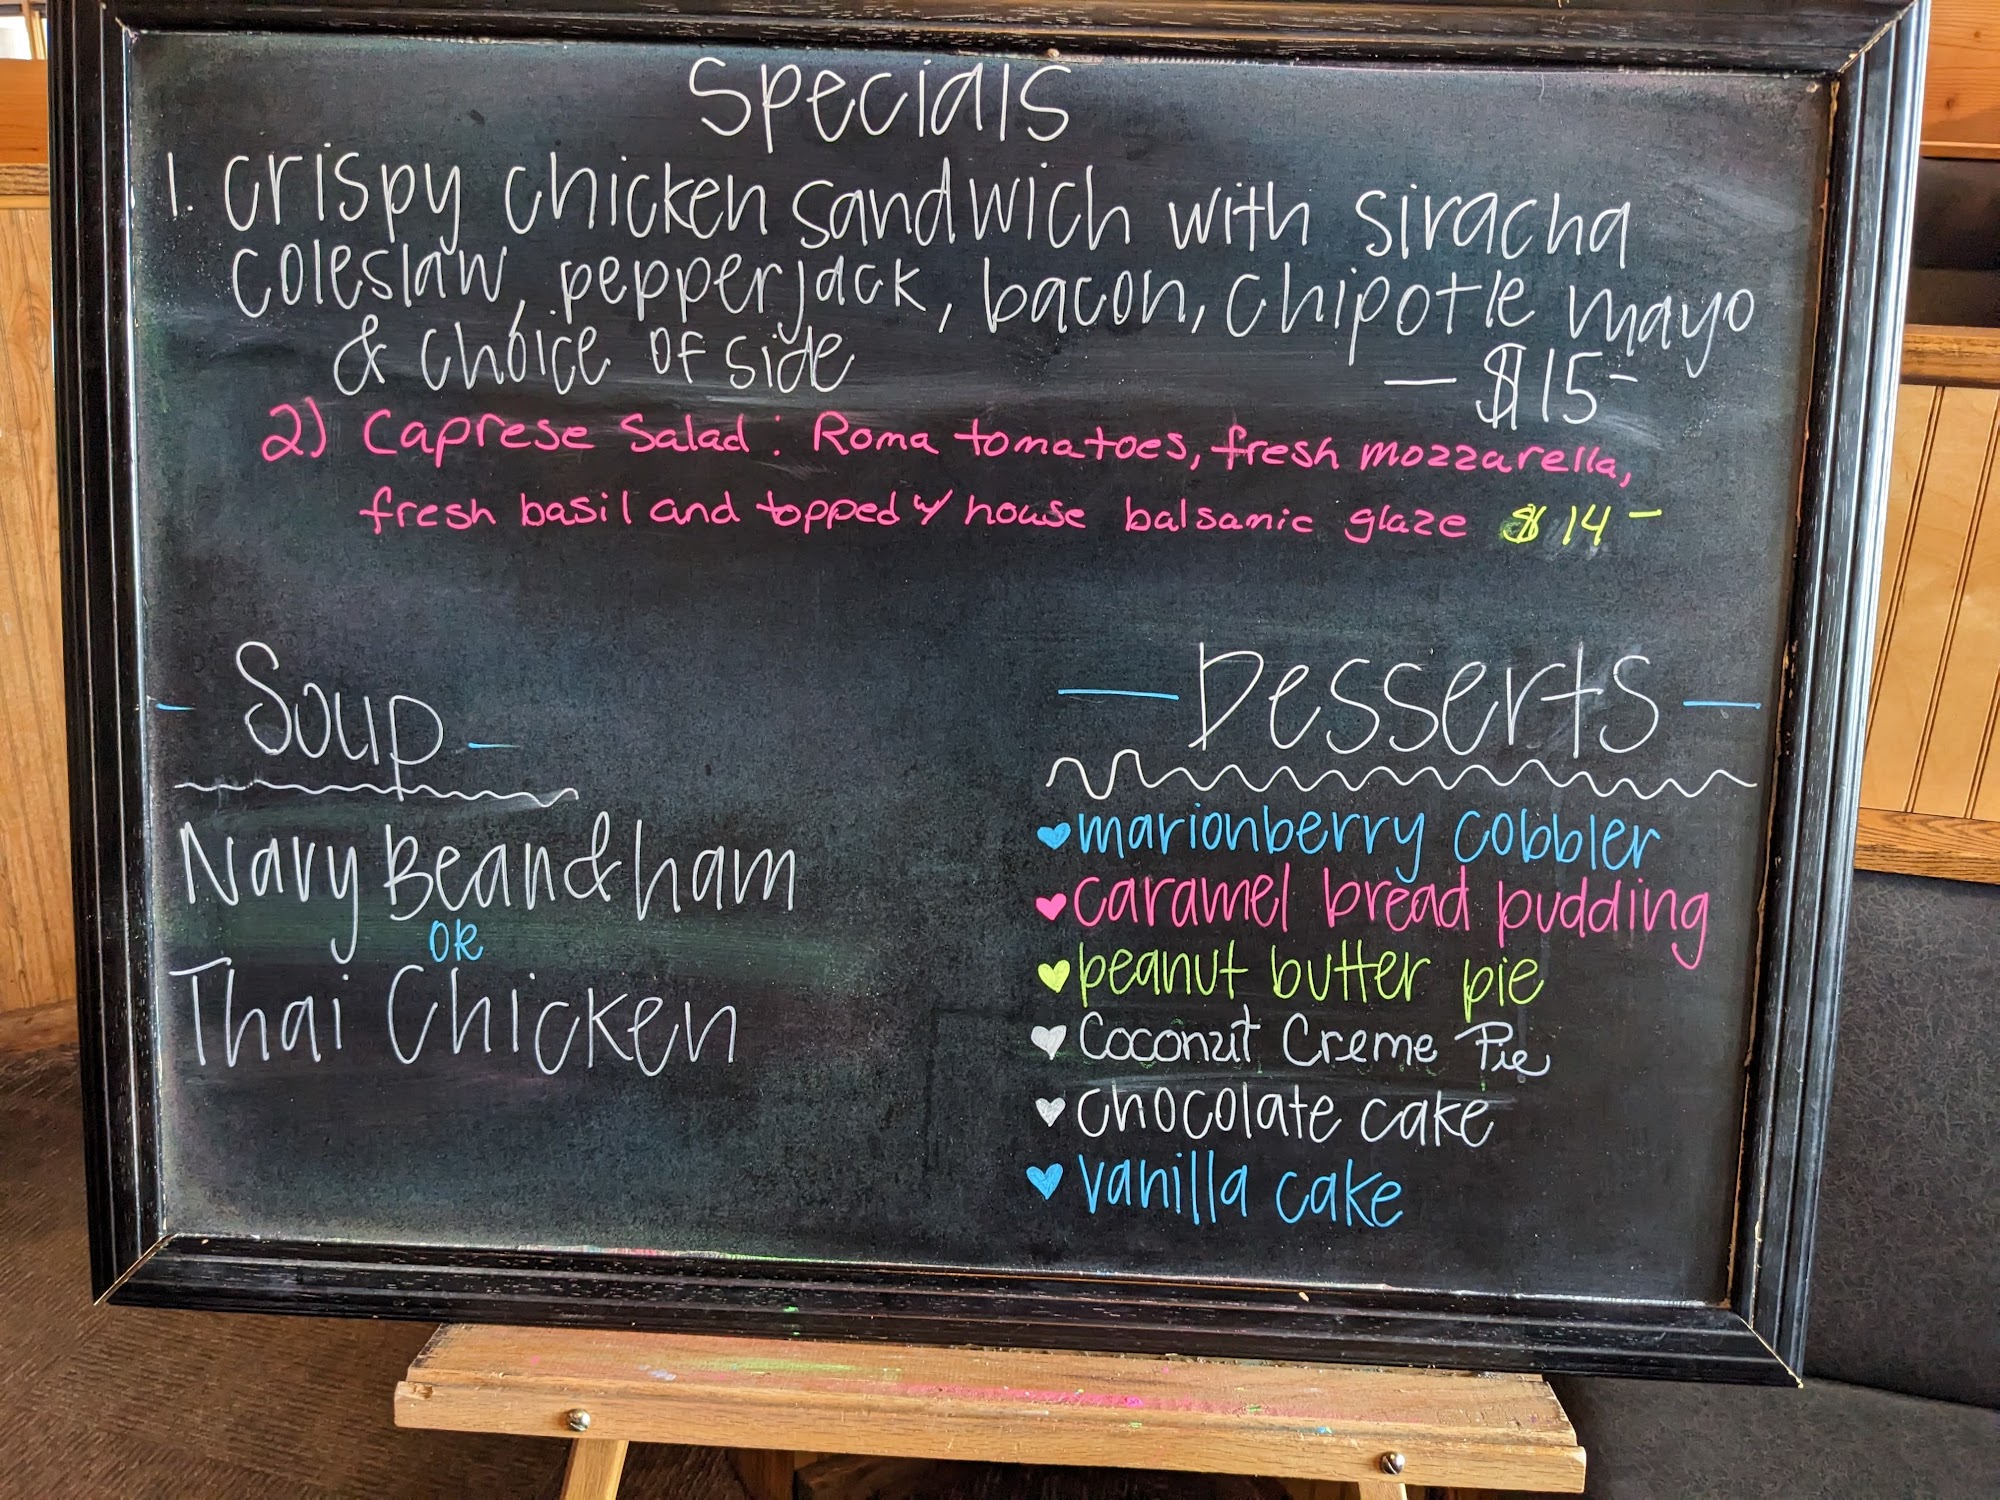 Specials
1. crispy chicken sandwich with siracha
coleslaw, pepperjack, bacon, chipotle mayo
& choice of side — $15-
2) Caprese Salad: Roma tomatoes, fresh mozzarella,
fresh basil and topped w/ house balsamic glaze $14-
- Soup -
Navy Bean & ham
OR
Thai Chicken
- Desserts -
♥ marionberry cobbler
♥ caramel bread pudding
♥ peanut butter pie
♥ Coconut Creme Pie
♥ chocolate cake
♥ vanilla cake